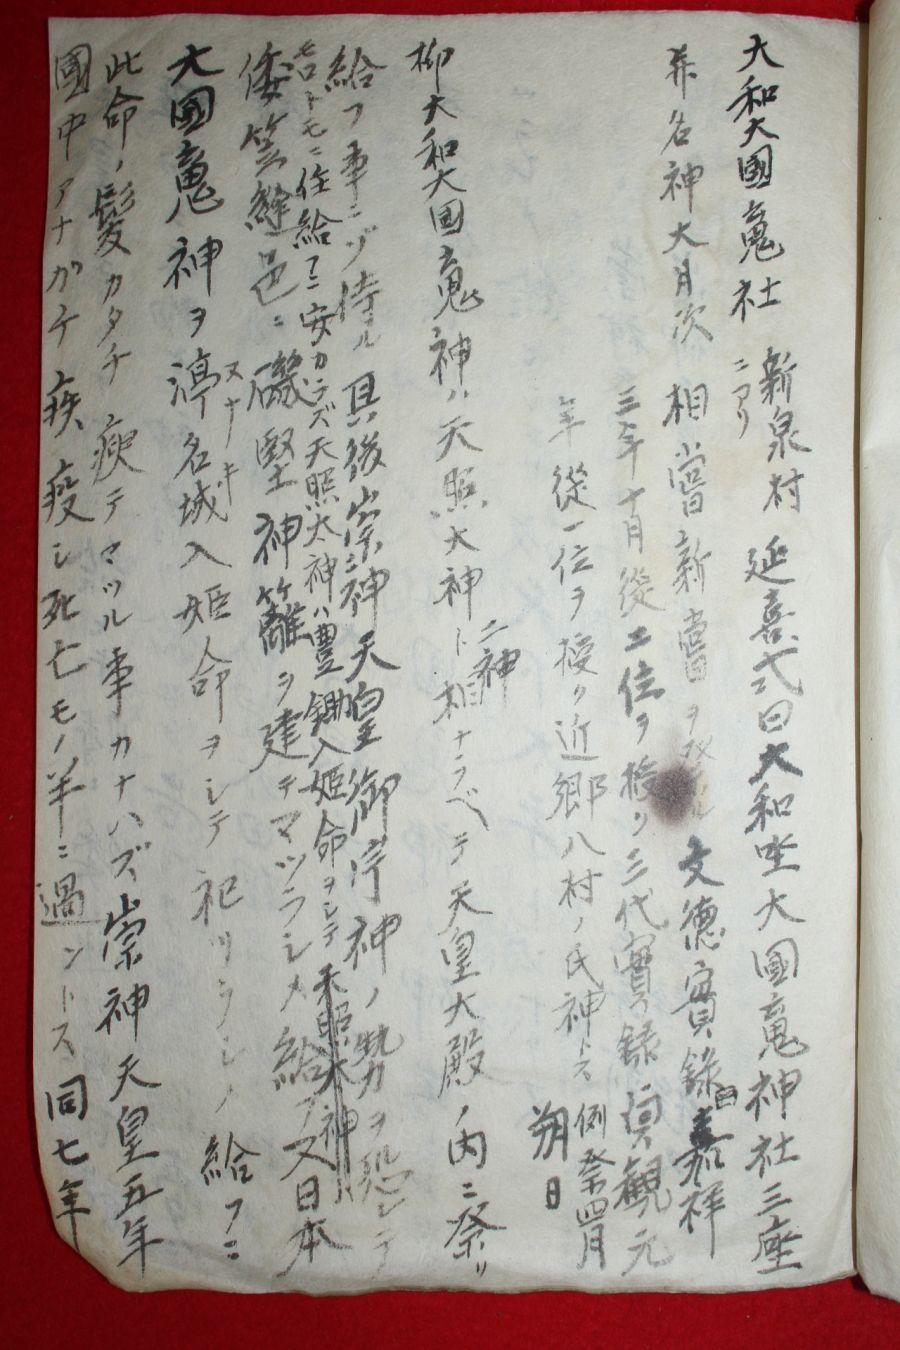 大和大國魂社 新泉村ニアリ 延喜式曰大和坐大國魂神社三座
并名神大月次 相嘗新嘗 文德實錄曰嘉祥
三年十月從二位ヲ授ク三代實録 貞観元
年 從一位ヲ授ク近郷八村ノ氏神トス 例祭四月
朔日
抑大和大国魂神ハ天照大神ト二神相ナラベテ天皇大殿ノ内ニ祭リ
給フ事ニゾ侍ル 其後崇神天皇御宇神ノ勢カヲ恐レテ
モロトモニ住給フニ安カラズ天照太神ハ豊鋤入姫命ヲシテ天照大神
倭笠縫邑ニ磯堅神籬ヲ建テマツラシメ給フ又日本
大國魂神ヲ渟名城入姫命ヲシテ祀ツラシメ給フニ
ヌナキ
此命ノ髪カタチ痩テマツル事カナハズ崇神天皇五年
國中アナガチ疾疫シ死亡モノ半ニ過ントス同七年